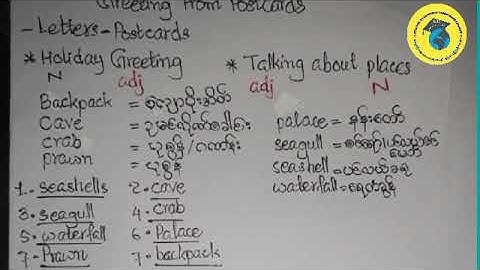 Greeting from Postcards
- Letters - Postcards
* Holiday Greeting
N adj
Backpack = ကျောပိုးအိတ်
Cave = ဥမင်လိုဏ်ခေါင်း
crab
prawn = ပုစွန်
* Talking about places
adj N
palace = နန်းတော်
seagull
seashell = ပင်လယ်ခရု
waterfall = ရေတံခွန်
1. seashells 2. cave
3. seagull 4. crab
5. waterfall 6. Palace
7. Prawn 7. backpack